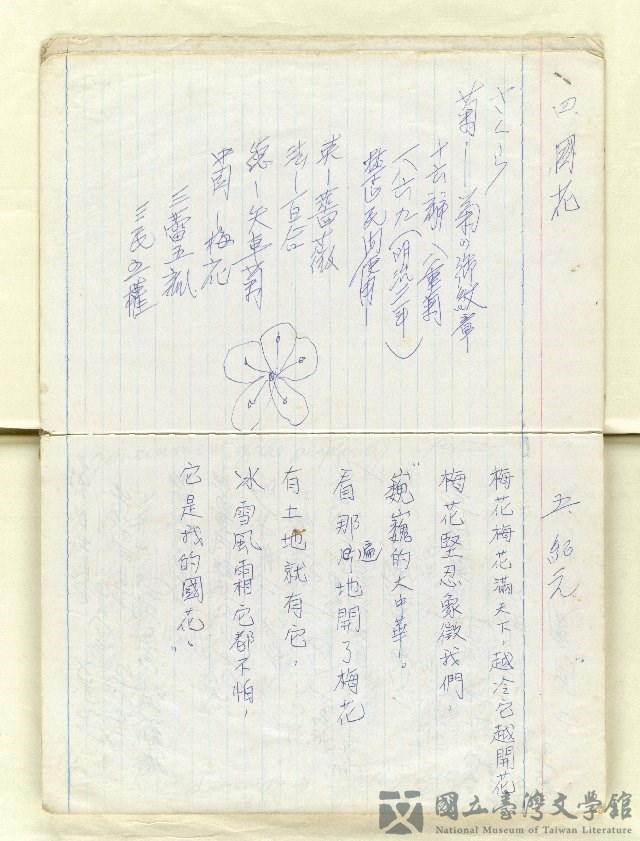 四、國花
さくら
菊ー菊の御紋章
十六瓣 八重菊
一八六九(明治二年)
禁止民間使用
英ー薔薇
法ー百合
德ー矢車菊
中国ー梅花
三蕾五瓣
三民五權
五、紀元
梅花梅花滿天下，越冷它越開花
梅花堅忍象徵我們，
巍巍的大中華。
看那遍地開了梅花
有土地就有它，
冰雪風霜它都不怕，
它是我的國花。
國立臺灣文學館
National Museum of Taiwan Literature